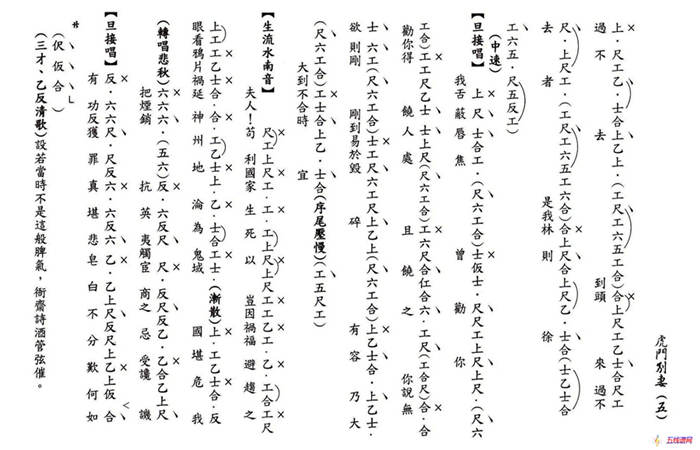 虎門別妻（五）
上．尺工乙．士合上乙上．（工尺工六五工合）合上尺工乙士合尺工
過不去到頭來過不
尺．上尺工．（工尺工六五工六合）合上尺合上尺乙．士合（士乙士合
去者是我林則徐
工六五．尺五反工）
（中速）
【旦接唱】上尺士合工．（尺六工合）士仮士．尺尺工上尺上尺．（尺六
我舌蔽唇焦曾勸你
工合）工工尺乙士士上尺（尺六工合）工六尺合仕合六．工尺（工合尺）合．合
勸你得饒人處且饒之你說無
士六工（尺六工合）士工尺六工尺上乙上（尺六工合）上乙士合．上乙士．
欲則剛剛到易於毀碎有容乃大
（尺六工合）工士合上乙．士合（序尾壓慢）（工五尺工）
大到不合時宜
【生流水南音】尺工上尺工．工．工上尺上尺工工乙工．乙．工合工尺
夫人！苟利國家生死以豈因禍福避趨之
上工工乙士合．合．工乙士上．乙．士合工士．（漸散）上．工乙士合．反
眼看鴉片禍延神州地淪為鬼域國堪危我
（轉唱悲秋）六六六．（五六）反．六反尺尺．反尺反乙．乙合乙上尺
把煙銷抗英夷觸宦商之忌受讒譏
【旦接唱】反．六六尺．尺反六．六反六乙．乙上尺反尺上乙上仮合
有功反獲罪真堪悲皂白不分歎何如
（伬仮合）
（三才、乙反清歌）設若當時不是這般脾氣，衙齋詩酒管弦催。
五线谱网